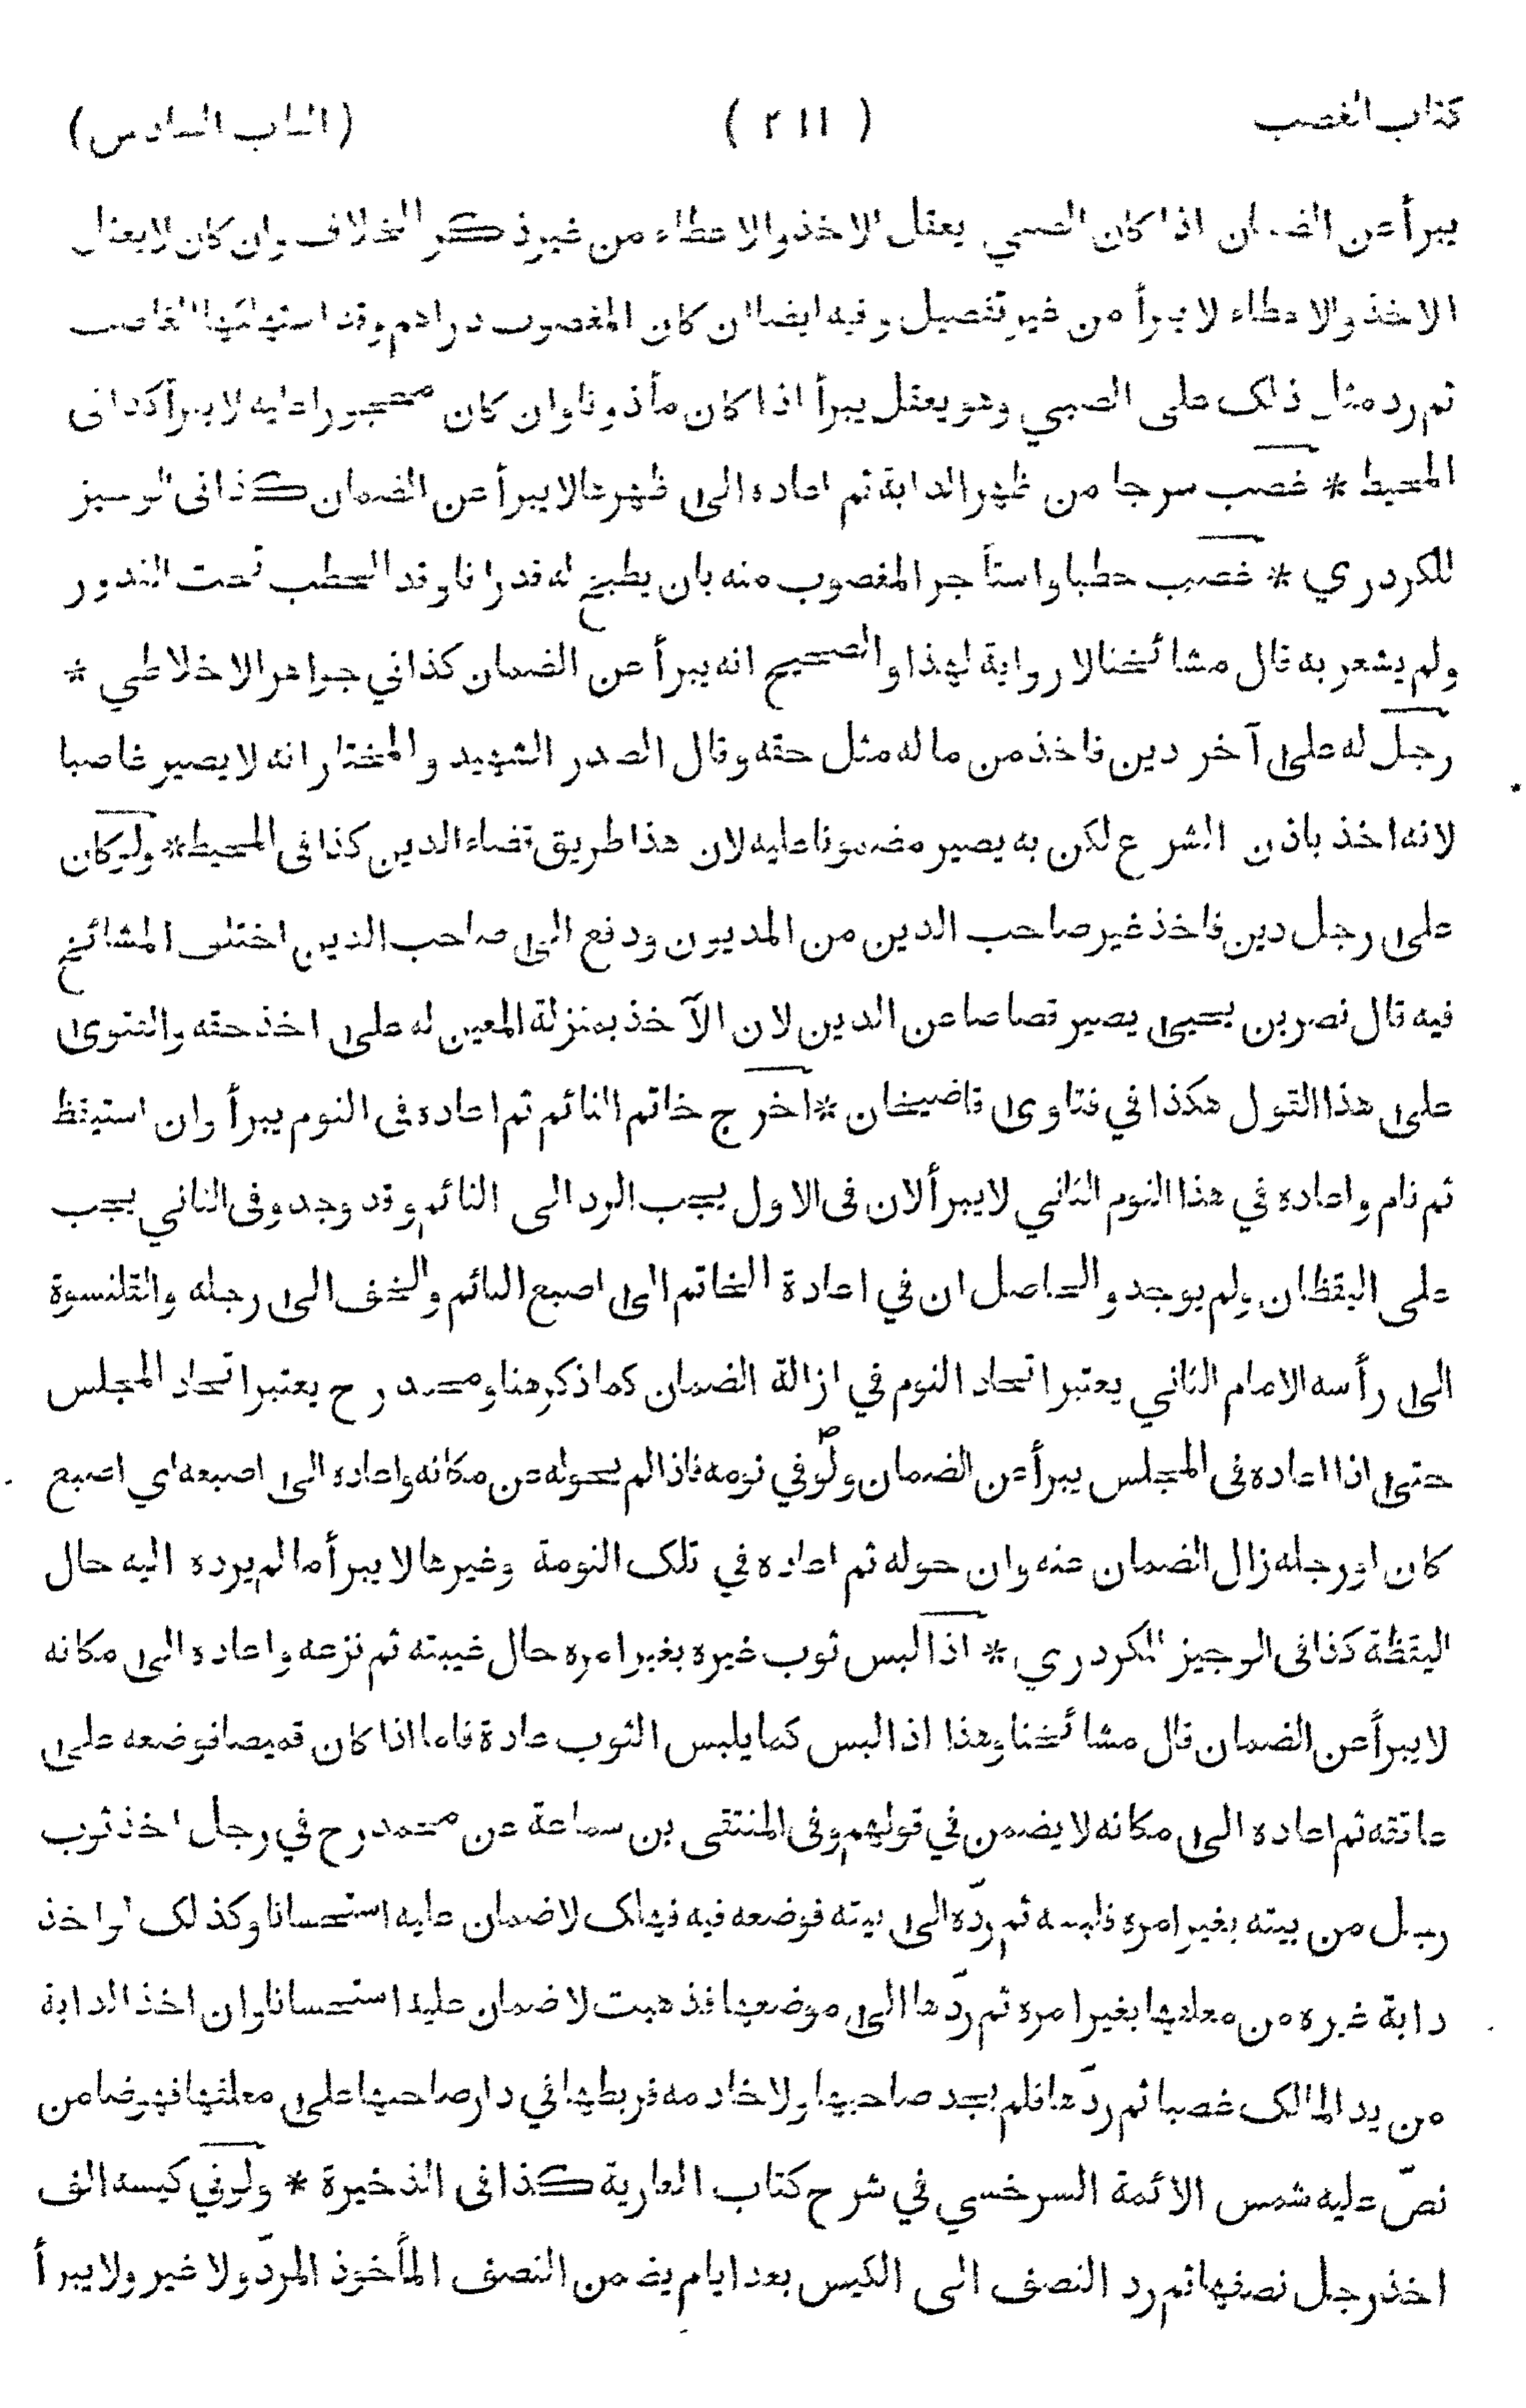 كتاب الغصب
( ٢١١ )
(الباب السادس)
يبرأ عن الضمان اذا كان الصبي يعقل الاخذ والاعطاء من غير ذكر الخلاف وان كان لا يعقل
الاخذ والاعطاء لا يبرأ من غير تفصيل وفيه ايضا ان كان المغصوب دراهم وقد استهلكها الغاصب
ثم رد مثل ذلک على الصبي وهو يعقل يبرأ اذا كان مأذونا وان كان محجورا عليه لا يبرأ كذا فى
المحيط * غصب سرجا من ظهر الدابة ثم اعاده الى ظهرها لا يبرأ عن الضمان كذا فى الوجيز
للكردري * غصب حطبا واستأجر المغصوب منه بان يطبخ له قدرا فاوقد الحطب تحت القدور
ولم يشعر به قال مشائخنا لا رواية لهذا والصحيح انه يبرأ عن الضمان كذا في جواهر الاخلاطي *
رجل له على آخر دين فاخذ من ماله مثل حقه وقال الصدر الشهيد والمختار انه لا يصير غاصبا
لانه اخذ باذن الشرع لكن به يصير مضمونا عليه لان هذا طريق قضاء الدين كذا فى المحيط * ولو كان
على رجل دين فاخذ غير صاحب الدين من المديون ودفع الى صاحب الدين اختلف المشائخ
فيه قال نصر بن يحيى يصير قصاصا عن الدين لان الآخذ بمنزلة المعين له على اخذ حقه والفتوى
على هذا القول هكذا في فتاوى قاضيخان * اخرج خاتم النائم ثم اعاده فى النوم يبرأ وان استيقظ
ثم نام واعاده في هذا النوم الثاني لا يبرأ لان فى الاول يجب الرد الى النائم وقد وجد وفى الثاني يجب
على اليقظان ولم يوجد والحاصل ان في اعادة الخاتم الى اصبع النائم والخف الى رجله والقلنسوة
الى رأسه الامام الثاني يعتبر اتحاد النوم في ازالة الضمان كما ذكر هنا ومحمد رح يعتبر اتحاد المجلس
حتى اذا اعاده فى المجلس يبرأ عن الضمان ولو في نومه فاذا لم يحوله عن مكانه واعاده الى اصبعه اي اصبع
كان او رجله زال الضمان عنه وان حوله ثم اعاده في تلک النومة وغيرها لا يبرأ ما لم يرده اليه حال
اليقظة كذا فى الوجيز للكردري * اذا لبس ثوب غيره بغير امره حال غيبته ثم نزعه واعاده الى مكانه
لا يبرأ عن الضمان قال مشائخنا وهذا اذا لبس كما يلبس الثوب عادة فاما اذا كان قميصا فوضعه على
عاتقه ثم اعاده الى مكانه لا يضمن في قولهم وفى المنتقى بن سماعة عن محمد رح في رجل اخذ ثوب
رجل من بيته بغير امره فلبسه ثم ردّه الى بيته فوضعه فيه فهلک لا ضمان عليه استحسانا وكذلک لو اخذ
دابة غيره من معلفها بغير امره ثم ردّها الى موضعها فذهبت لا ضمان عليه استحسانا وان اخذ الدابة
من يد المالک غصبا ثم ردّها فلم يجد صاحبها ولا خادمه فربطها في دار صاحبها على معلفها فهو ضامن
نصّ عليه شمس الائمة السرخسي في شرح كتاب العارية كذا فى الذخيرة * ولو في كيسه الف
اخذ رجل نصفها ثم رد النصف الى الكيس بعد ايام يضمن النصف المأخوذ المردّ ولا غير ولا يبرأ